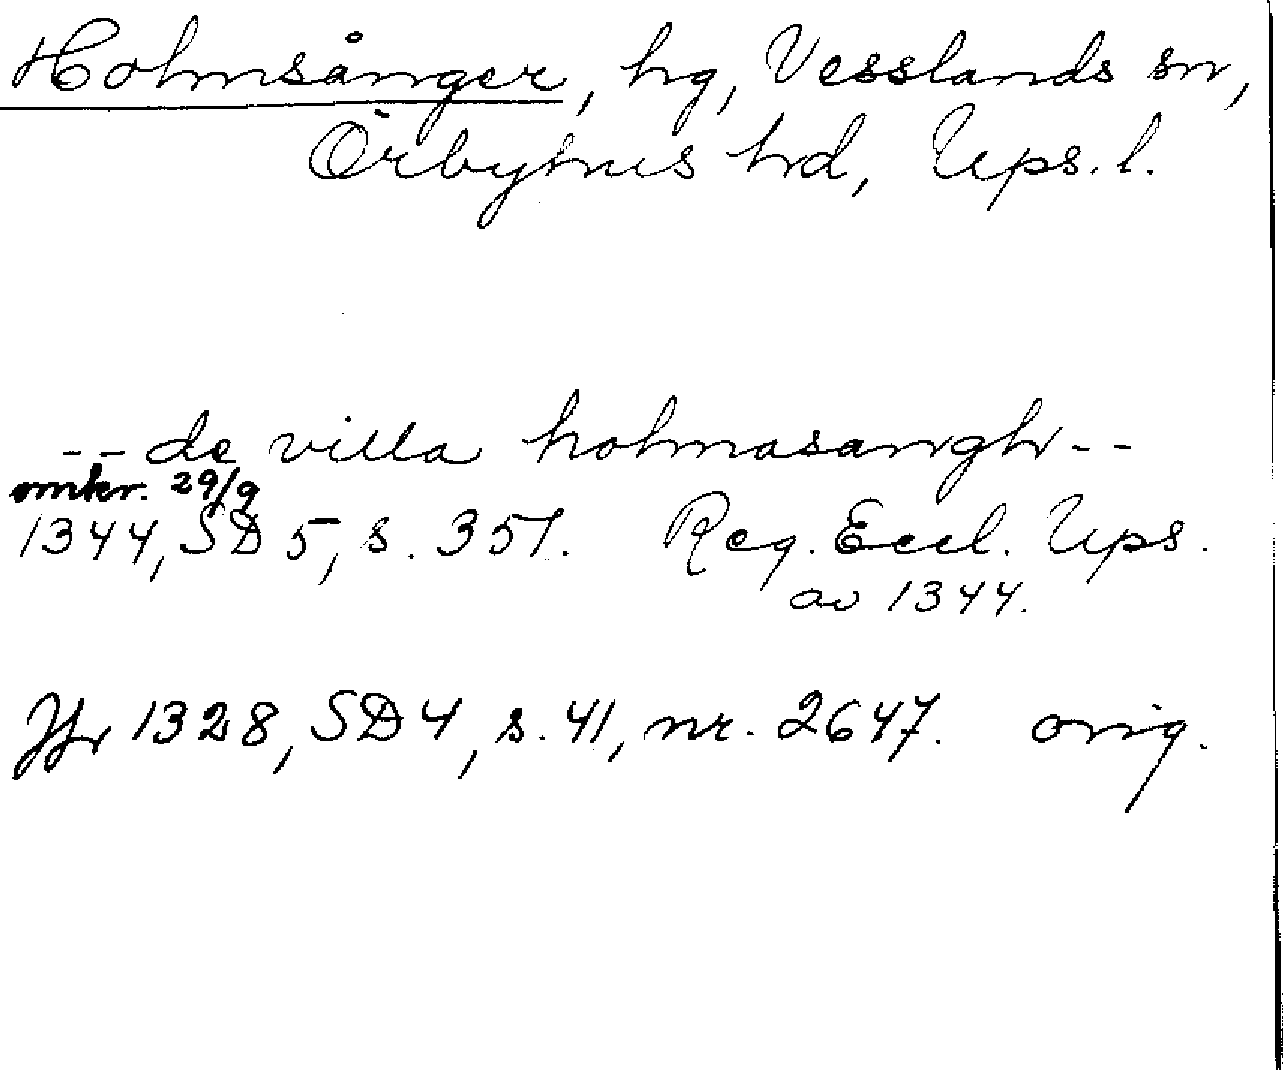 Holmsånger, hg, Vesslands sn,
Örbyhus hd, Ups. l.
-- de villa holmasangh --
omkr. 29/9
1344, SD 5, s. 357. Reg. Eccl. Ups.
av 1344.
Jfr 1328, SD 4, s. 41, nr. 2647. orig.